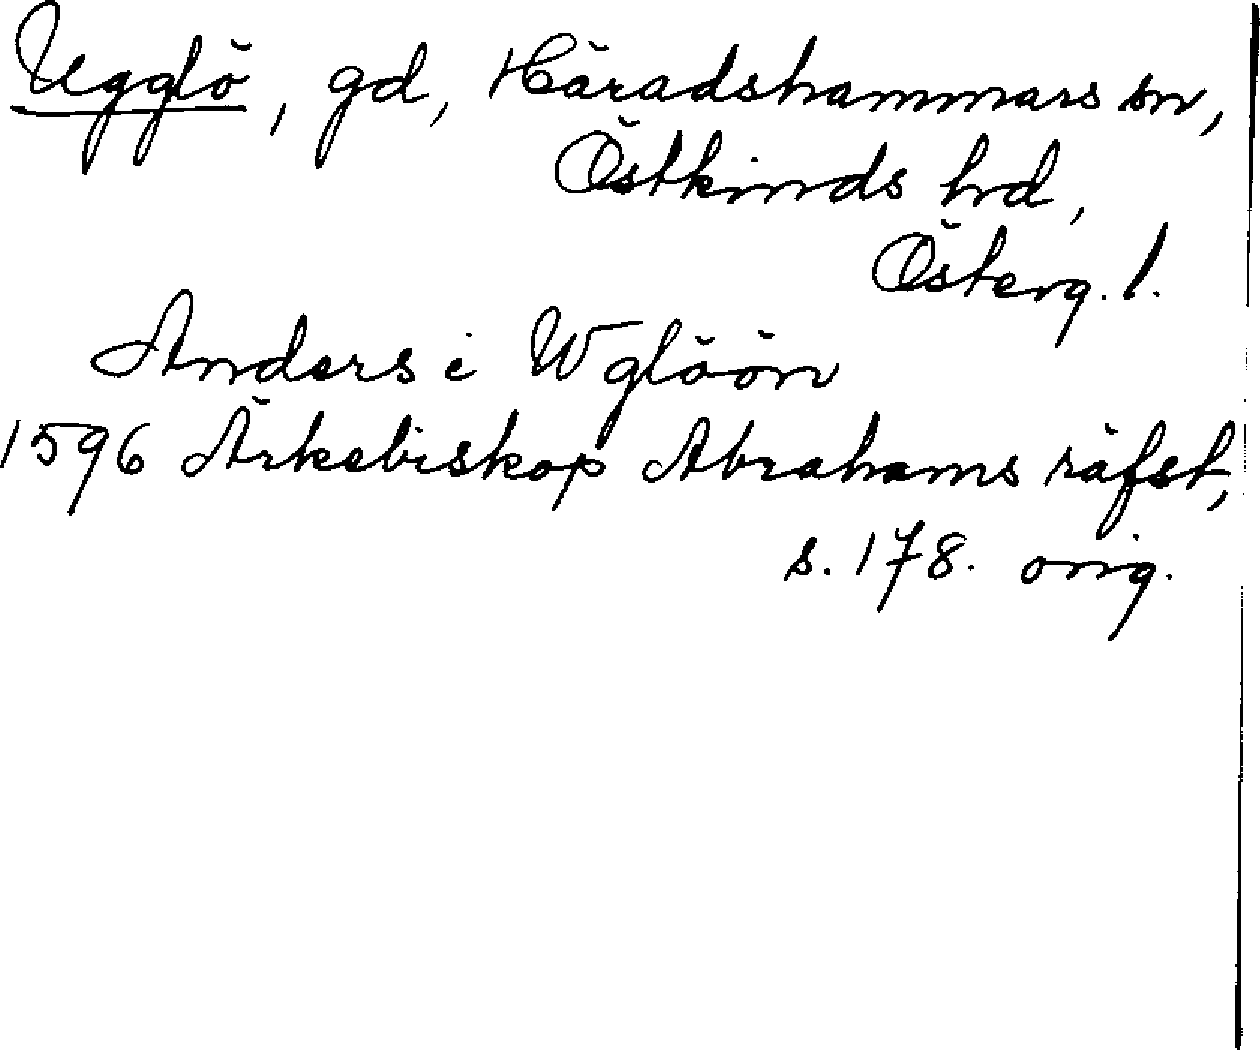 Ugglö, gd, Häradshammars sn,
Östkinds hd,
Österg. l.
Anders i Wglöön
1596 Ärkebiskop Abrahams räfst,
s. 178. orig.